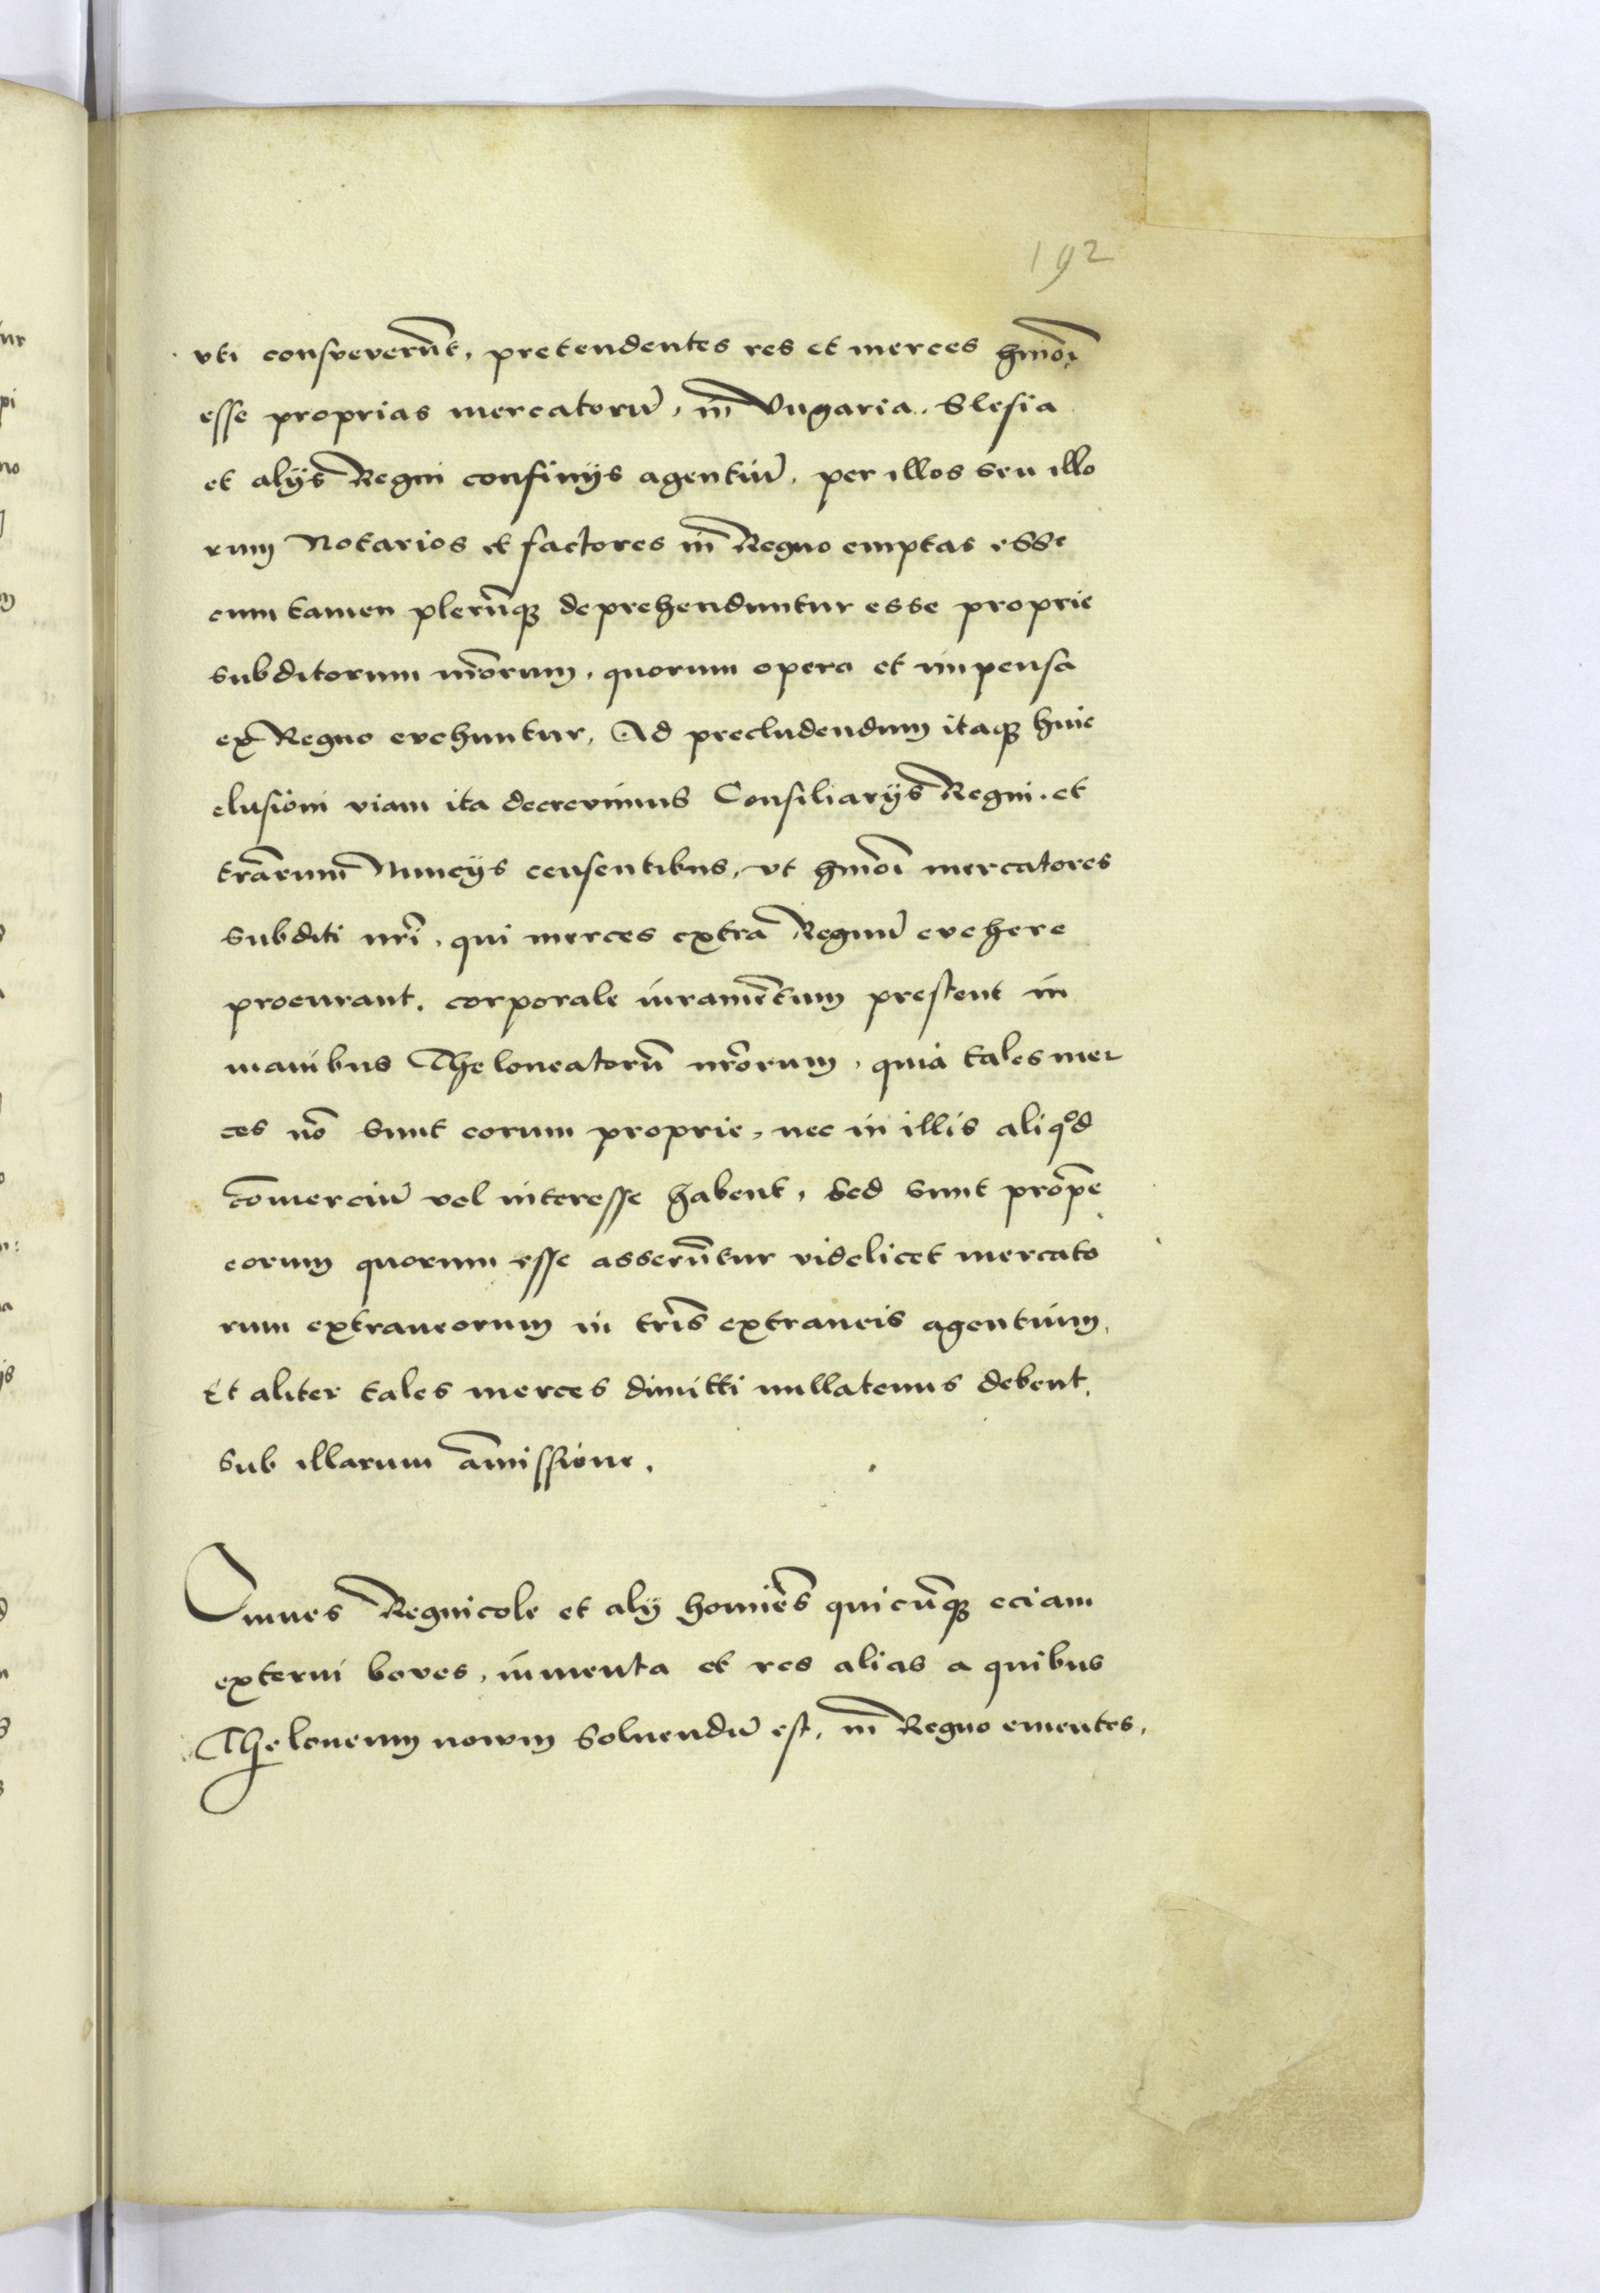 192
vti consveverūt, pretendentes res et merces hmōi
esse proprias mercatorū, in Vngaria. Slesia
et alijs Regni confinijs agentiū, per illos seu illo
rum Notarios et factores in Regno emptas esse
cum tamen plerūq3 deprehenduntur esse proprie
subditorum nrōrum, quorum opera et impensa
ex Regno evehuntur, Ad precludendum itaq3 huic
elusioni viam ita decrevimus Consiliarijs Regni. et
trārum Nuncijs censentibus, vt hmōi mercatores
subditi nrī, qui merces extra Regnū evehere
procurant. corporale iuramētum prestent in
manibus Theloneatorū nrōrum, quia tales mer
ces nō sunt eorum proprie, nec in illis aliqod
cōmerciū vel interesse habent, sed sunt prōpe
eorum quorum esse asserūtur videlicet mercato
rum extraneorum in trīs extraneis agentium,
Et aliter tales merces dimitti nullatenus debent,
sub illarum āmissione.
Omnes Regnicole et alij homiēs quicūq3 eciam
externi boves, iumenta et res alias a quibus
Theloneum nowm soluendū est, in Regno ementes,